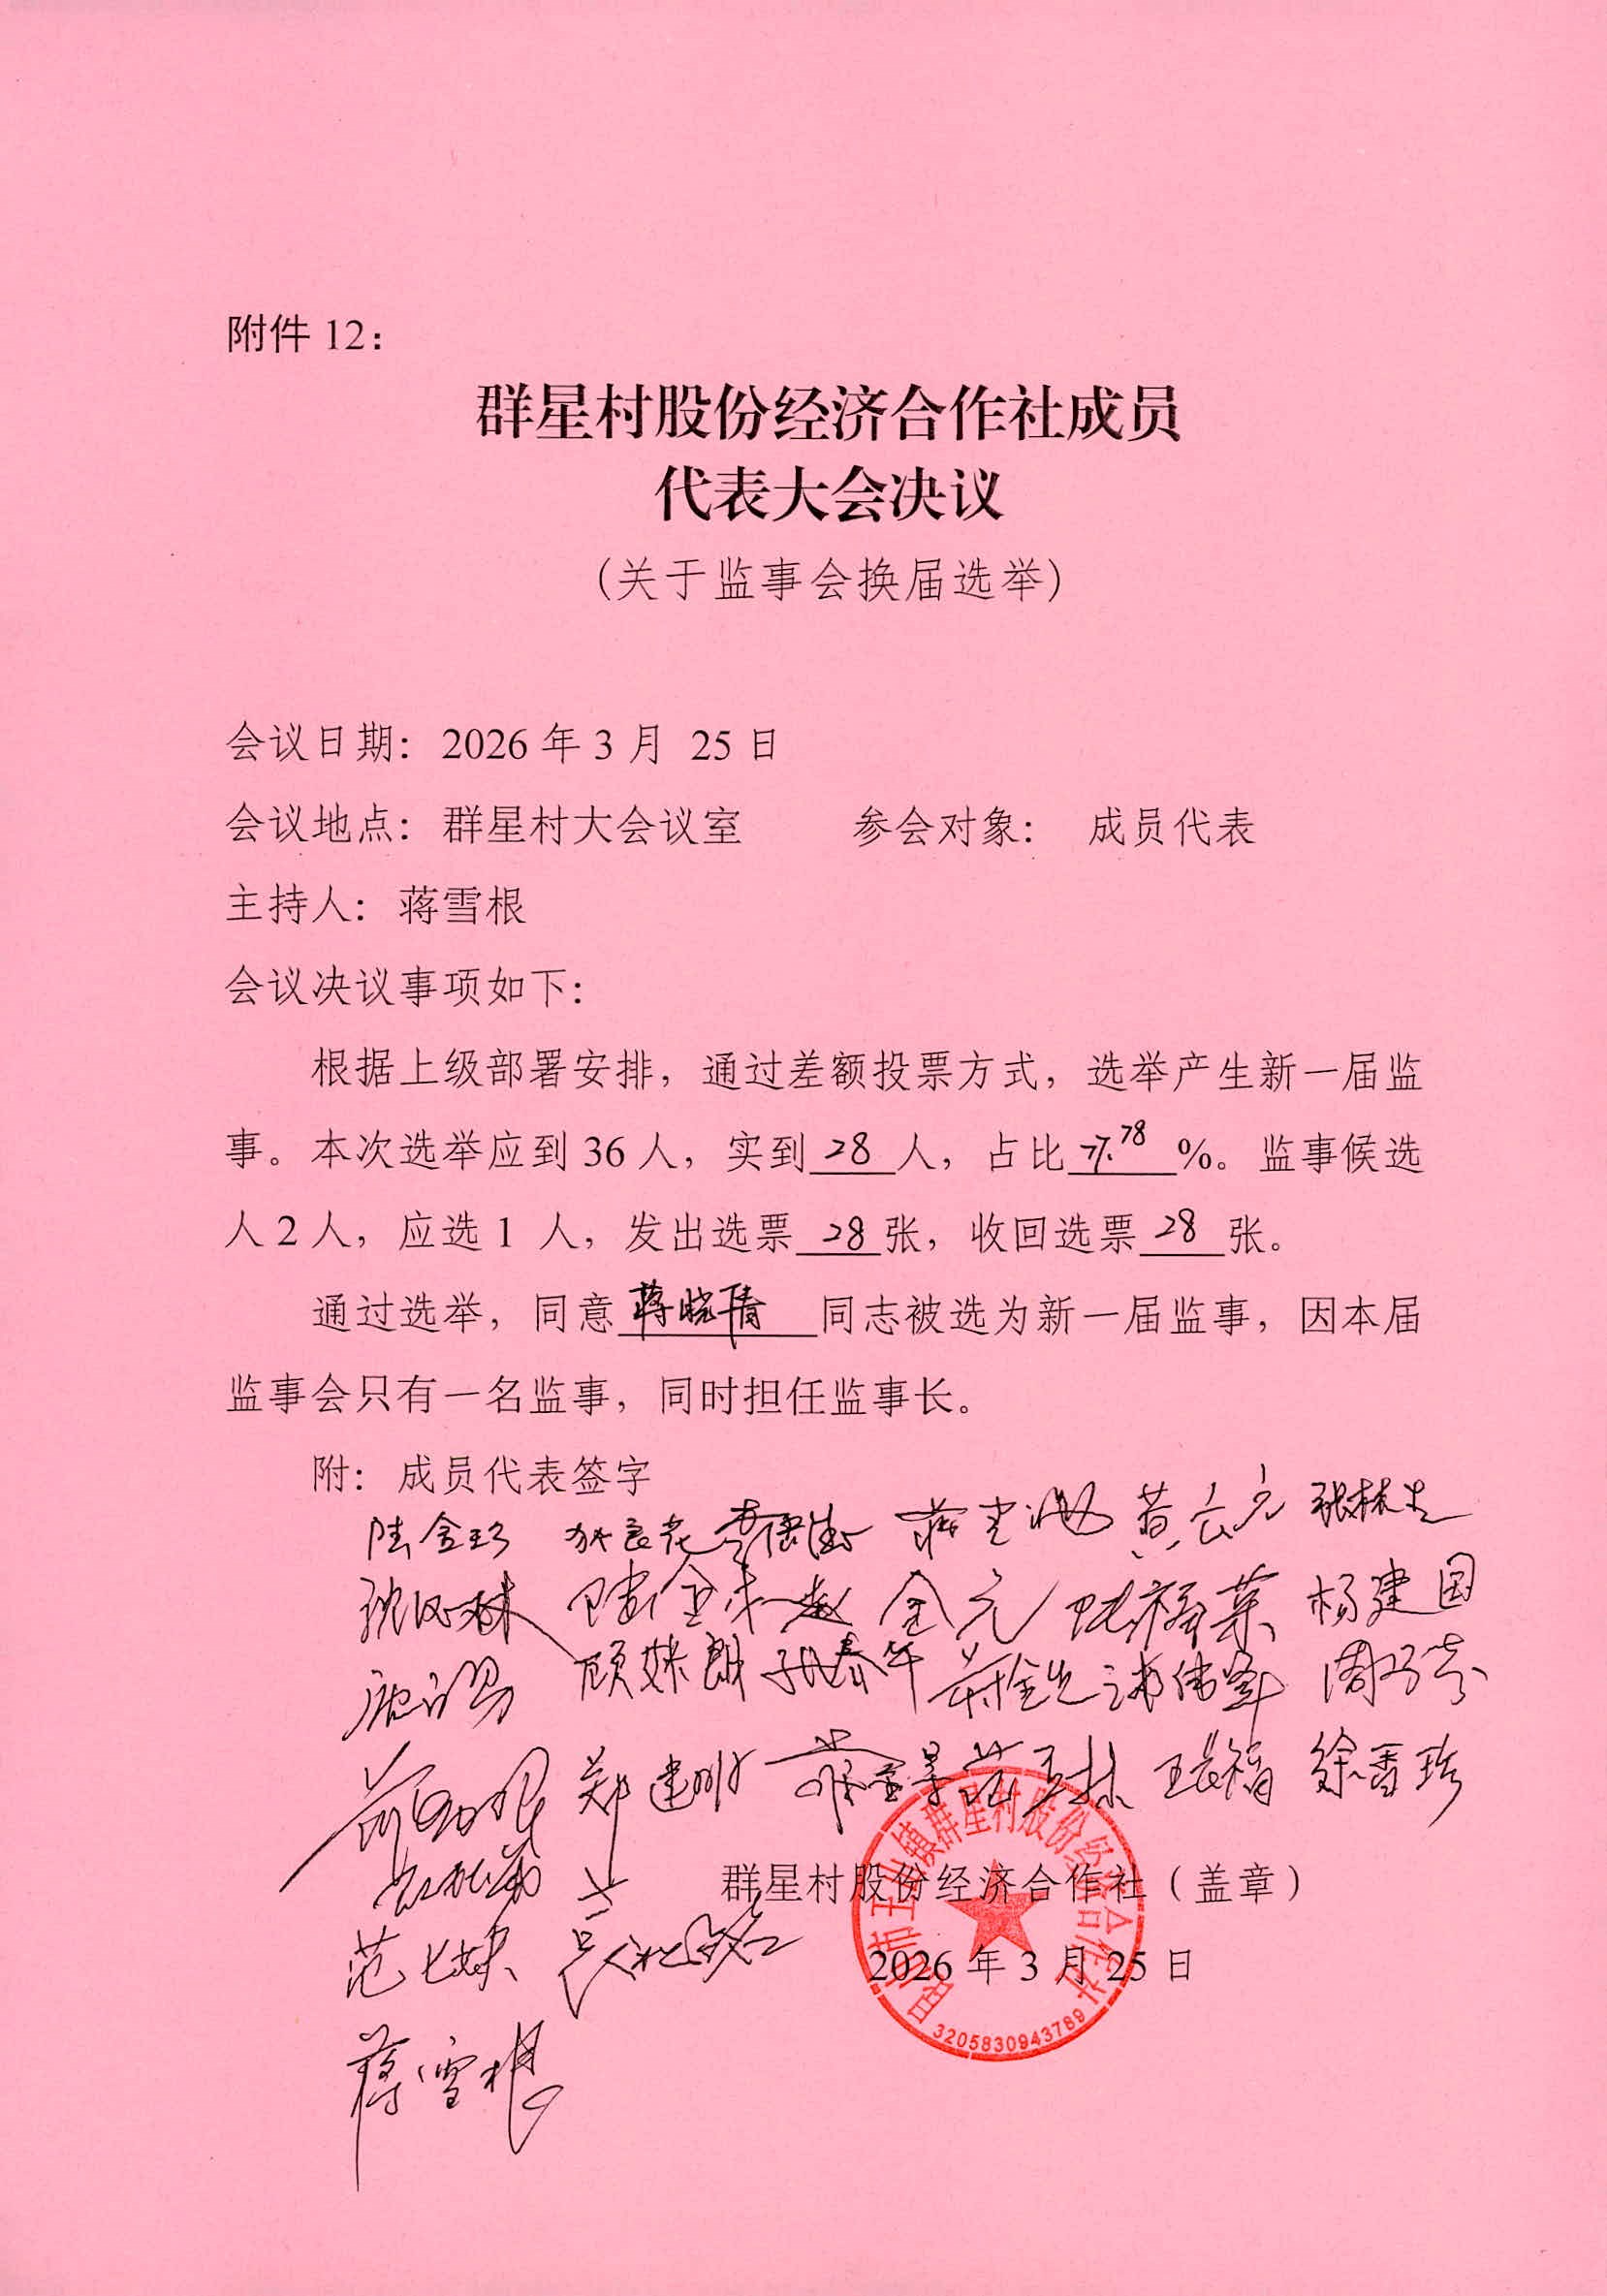 附件 12：
群星村股份经济合作社成员
代表大会决议
（关于监事会换届选举）
会议日期：2026 年 3 月 25 日
会议地点：群星村大会议室 参会对象： 成员代表
主持人：蒋雪根
会议决议事项如下：
根据上级部署安排，通过差额投票方式，选举产生新一届监
事。本次选举应到 36 人，实到 28 人，占比 77.78 %。监事候选
人 2 人，应选 1 人，发出选票 28 张，收回选票 28 张。
通过选举，同意 蒋晓倩 同志被选为新一届监事，因本届
监事会只有一名监事，同时担任监事长。
附：成员代表签字
陆金珍 黄云元 张林生
陆金朱 赵金元 陆福英 杨建国
顾妹朗 孔春华 周巧芬
郑建明 王长福 徐香珍
群星村股份经济合作社（盖章）
范七妹
2026 年 3 月 25 日
蒋雪根
昆山市玉山镇群星村股份经济合作社
3205830943789